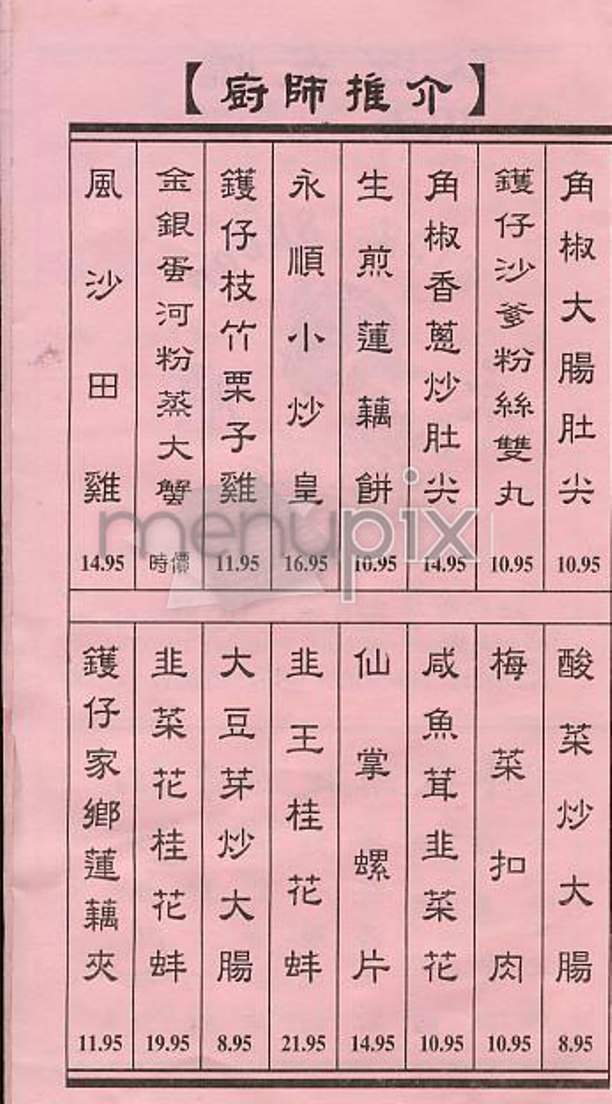 【廚師推介】
角椒大腸肚尖 10.95
鑊仔沙爹粉絲雙丸 10.95
角椒香蔥炒肚尖 14.95
生煎蓮藕餅 10.95
永順小炒皇 16.95
鑊仔枝竹栗子雞 11.95
金銀蛋河粉蒸大蟹 時價
風沙田雞 14.95
酸菜炒大腸 8.95
梅菜扣肉 10.95
咸魚茸韭菜花 10.95
仙掌螺片 14.95
韭王桂花蚌 21.95
大豆芽炒大腸 8.95
韭菜花桂花蚌 19.95
鑊仔家鄉蓮藕夾 11.95
menupix